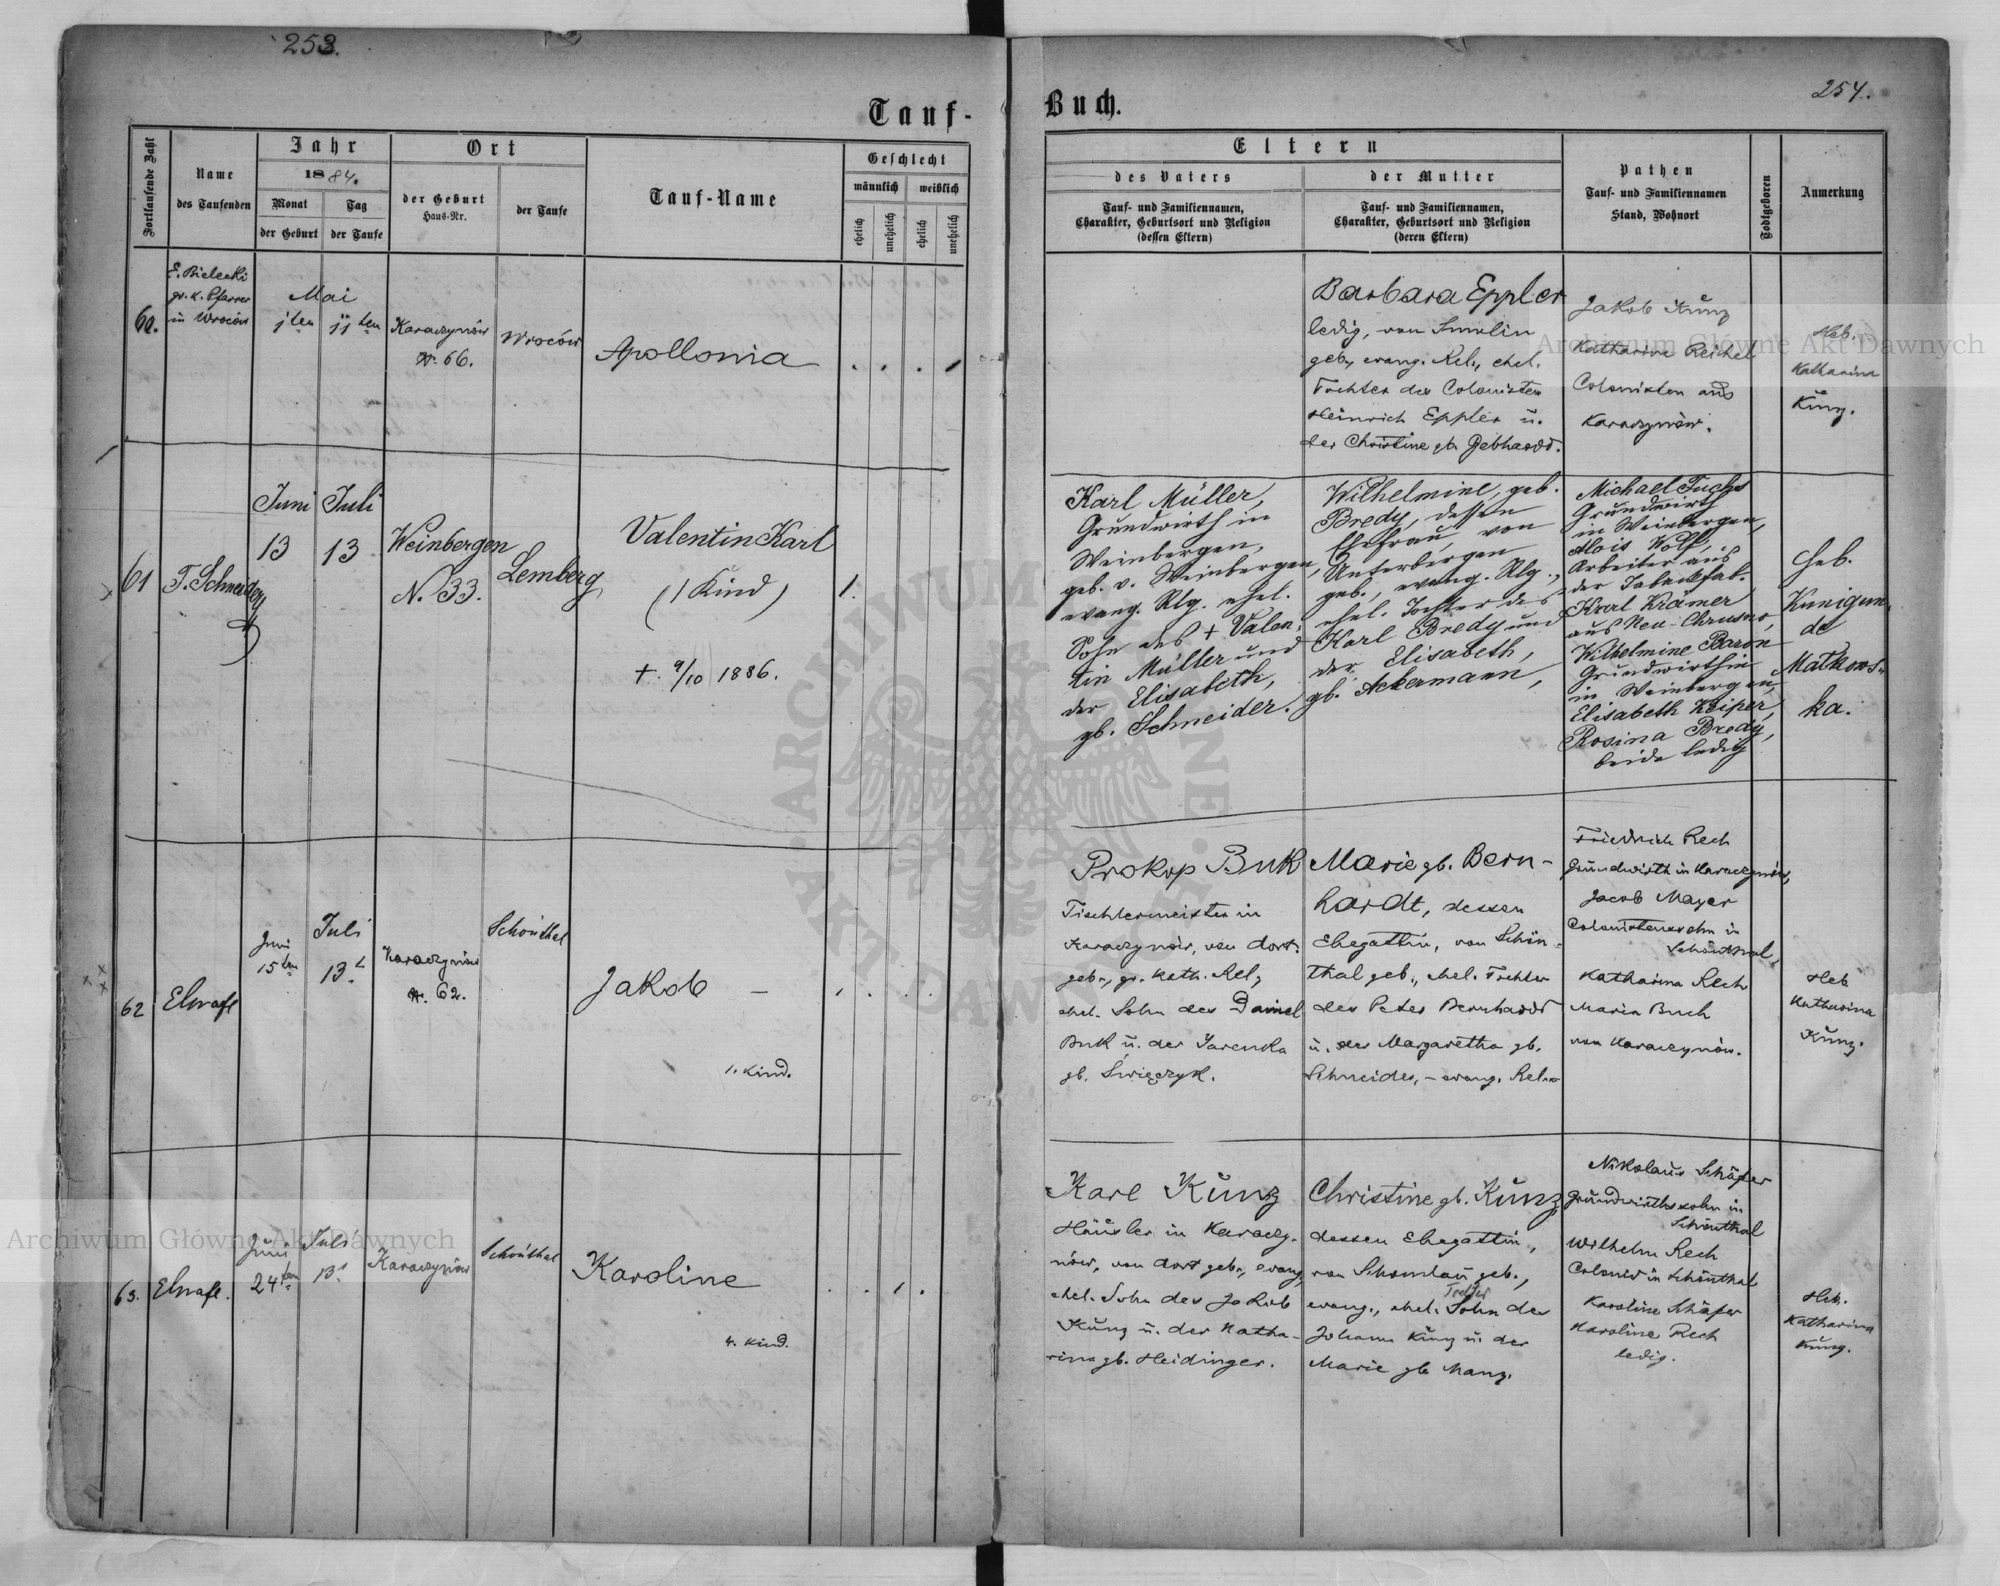 253.
254.
Tauf-
Buch.
Fortlaufende Zahl
Name
des Taufenden
Jahr
1884.
Monat
der Geburt
Tag
der Taufe
Ort
der Geburt
Haus-Nr.
der Taufe
Tauf-Name
Geschlecht
männlich
weiblich
ehelich
unehelich
ehelich
unehelich
Eltern
des Vaters
Tauf- und Familiennamen,
Charakter, Geburtsort und Religion
(dessen Eltern)
der Mutter
Tauf- und Familiennamen,
Charakter, Geburtsort und Religion
(deren Eltern)
Pathen
Tauf- und Familiennamen
Stand, Wohnort
Todtgeboren
Anmerkung
60.
E. Bielecki
gr. k. Pfarrer
in Wroców
Mai
1ten
11ten
Karaczynów
Nr. 66.
Wroców
Apollonia
Barbara Eppler
ledig, von Smolin
geb., evang. Rel., ehel.
Tochter des Colonisten
Heinrich Eppler u.
der Christine gb. Gebhardt.
Jakob Kunz
Katharine Reichel
Colonisten aus
Karaczynów.
Heb.
Katharina
Kunz.
61
T. Schneider
Juni
13
Juli
13
Weinbergen
N. 33.
Lemberg
Valentin Karl
(1 Kind)
+. 9/10 1886.
1.
Karl Müller,
Grundwirth in
Weinbergen,
geb. v. Weinbergen,
evang. Rlg. ehel.
Sohn des + Valen-
tin Müller und
der Elisabeth,
gb. Schneider.
Wilhelmine, geb.
Bredy, dessen
Ehefrau, von
Unterbergen
geb., evang. Rlg.,
ehel. Tochter des
Karl Bredy und
der Elisabeth,
gb. Ackermann,
Michael Fuchs
Grundwirth
in Weinbergen,
Alois Wolf,
Arbeiter aus
der Tabackfab.
Karl Krämer
aus Neu-Chrusno,
Wilhelmine Baron
Grundwirthin
in Weinbergen,
Elisabeth Keiper,
Rosina Bredy,
beide ledig
Heb.
Kunigun-
de
Matkows-
ka.
62
Juni
15ten
Juli
13.
Karaczynów
Nr. 62.
Schönthal
Jakob —
1. Kind.
Prokop Buk
Tischlermeister in
Karaczynów, von dort
geb., gr. kath. Rel.,
ehel. Sohn des Daniel
Buk u. der Jarenka
gb. Święczyk.
Marie gb. Bern-
hardt, dessen
Ehegattin, von Schön-
thal geb., ehel. Tochter
des Peter Bernhardt
u. der Margaretha gb.
Schneider, – evang. Rel.
Friedrich Rech
Grundwirth in Karaczynów,
Jacob Mayer
Colonistensohn in
Schönthal,
Katharina Rech
Maria Buch
von Karaczynów.
Heb.
Katharina
Kunz.
63.
Juni
24ten
Juli
13.
Karaczynów
Schönthal
Karoline
4. Kind.
Karl Kunz
Häusler in Karaczy-
nów, von dort geb., evang.,
ehel. Sohn des Jakob
Kunz u. der Katha-
rina gb. Heidinger.
Christine gb. Kunz,
dessen Ehegattin,
von Schomlau geb.,
Tochter
evang., ehel. Sohn des
Johann Kunz u. der
Marie gb. Manz.
Nikolaus Schäfer
Grundwirthssohn in
Schönthal
Wilhelm Rech
Colonist in Schönthal
Karoline Schäfer
Karoline Rech
ledig.
Heb.
Katharina
Kunz.
Archiwum Główne Akt Dawnych
Archiwum Główne Akt Dawnych